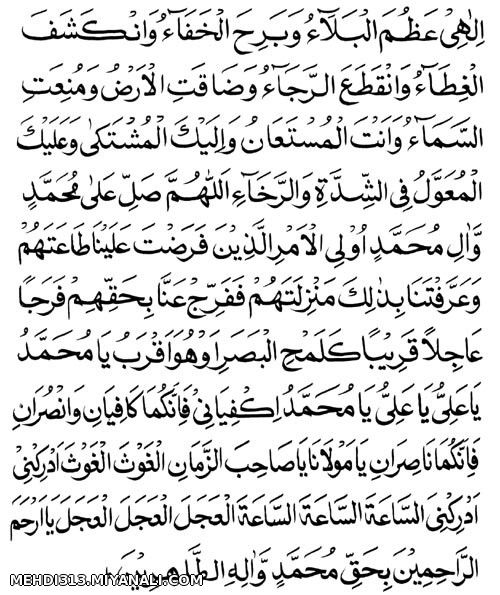 اِلٰهِیْ عَظُمَ الْبَلَآءُ وَبَرِحَ الْخَفَآءُ وَانْكَشَفَ
الْغِطَآءُ وَانْقَطَعَ الرَّجَآءُ وَضَاقَتِ الْاَرْضُ وَمُنِعَتِ
السَّمَآءُ وَاَنْتَ الْمُسْتَعَانُ وَاِلَیْكَ الْمُشْتَكٰی وَعَلَیْكَ
الْمُعَوَّلُ فِی الشِّدَّةِ وَالرَّخَآءِ اَللّٰهُمَّ صَلِّ عَلٰی مُحَمَّدٍ
وَّاٰلِ مُحَمَّدٍ اُولِی الْاَمْرِ الَّذِیْنَ فَرَضْتَ عَلَیْنَا طَاعَتَهُمْ
وَعَرَّفْتَنَا بِذٰلِكَ مَنْزِلَتَهُمْ فَفَرِّجْ عَنَّا بِحَقِّهِمْ فَرَجًا
عَاجِلًا قَرِیْبًا كَلَمْحِ الْبَصَرِ اَوْ هُوَ اَقْرَبُ یَا مُحَمَّدُ
یَا عَلِیُّ یَا عَلِیُّ یَا مُحَمَّدُ اِكْفِیَانِیْ فَاِنَّكُمَا كَافِیَانِ وَانْصُرَانِ
فَاِنَّكُمَا نَاصِرَانِ یَا مَوْلَانَا یَا صَاحِبَ الزَّمَانِ الْغَوْثَ الْغَوْثَ اَدْرِكْنِیْ
اَدْرِكْنِی السَّاعَةَ السَّاعَةَ السَّاعَةَ الْعَجَلَ الْعَجَلَ الْعَجَلَ یَا اَرْحَمَ
الرَّاحِمِیْنَ بِحَقِّ مُحَمَّدٍ وَّاٰلِهِ الطَّاهِرِیْنَ
MEHDI313.MIYANALI.COM